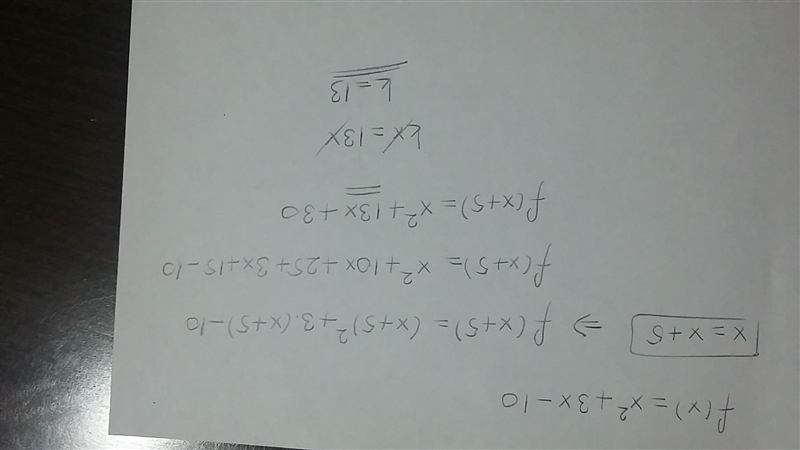 f(x) = x²+3x-10
x = x+5 ⇒ f(x+5) = (x+5)²+3.(x+5)-10
f(x+5) = x²+10x+25+3x+15-10
f(x+5) = x²+13x+30
kx = 13x
k = 13